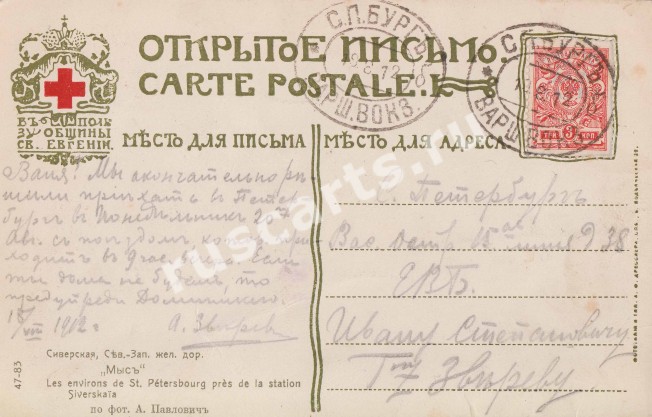 ОТКРЫТОЕ ПИСЬМО.
CARTE POSTALE.
ВЪ ПОЛЬ
ЗУ ОБЩИНЫ
СВ. ЕВГЕНІИ.
МѢСТО ДЛЯ ПИСЬМА
МѢСТО ДЛЯ АДРЕСА
С.П.БУРГЪ
19.8.12
ВАРШ.ВОКЗ.
С.П.БУРГЪ
ВАРШ.
ТРИ 3 КОП.
Ваня! Мы окончательно рѣ
шили пріѣхать въ Петер
бургъ въ Понедѣльникъ 20го
Авг. съ поѣздомъ, который при
ходитъ въ 9 час. Если
ты дома не будешь, то
предупреди
1912 г. А. Звѣревъ
С. Петербургъ
Вас. Остр. 15ая линія Д 38
ЕВБ.
Ивану Степановичу
Гну Звѣреву
Сиверская, Сѣв.-Зап. жел. дор.
„Мысъ"
Les environs de St. Pétersbourg près de la station
Siverskaïa
по фот. А. Павловичъ
47-83
ruscarts.ru